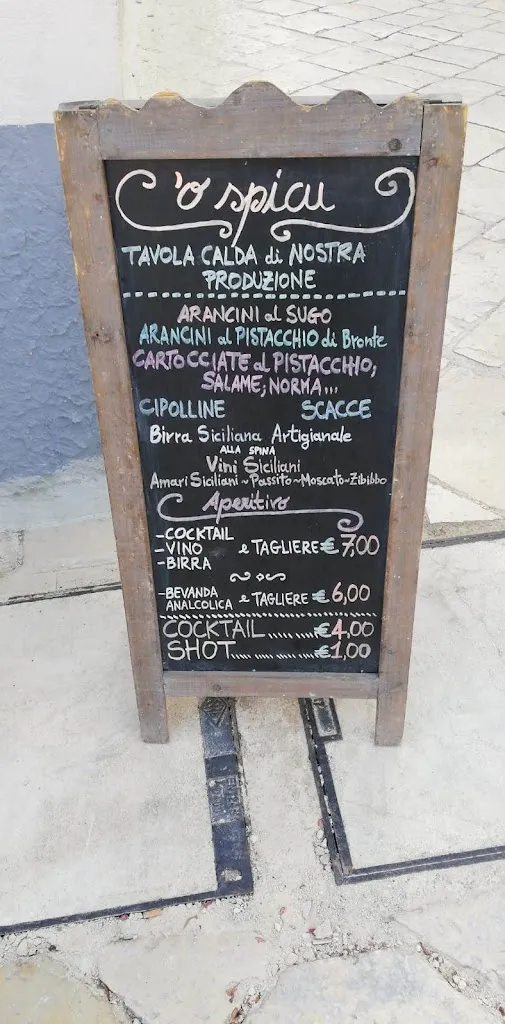 'o spicu
TAVOLA CALDA di NOSTRA
PRODUZIONE
ARANCINI al SUGO
ARANCINI al PISTACCHIO di Bronte
CARTOCCIATE al PISTACCHIO,
SALAME, NORMA...
CIPOLLINE SCACCE
Birra Siciliana Artigianale
ALLA SPINA
Vini Siciliani
Amari Siciliani ~ Passito ~ Moscato ~ Zibibbo
Aperitivo
-COCKTAIL
-VINO e TAGLIERE €7,00
-BIRRA
-BEVANDA
ANALCOLICA e TAGLIERE €6,00
COCKTAIL...... €4,00
SHOT............ €1,00